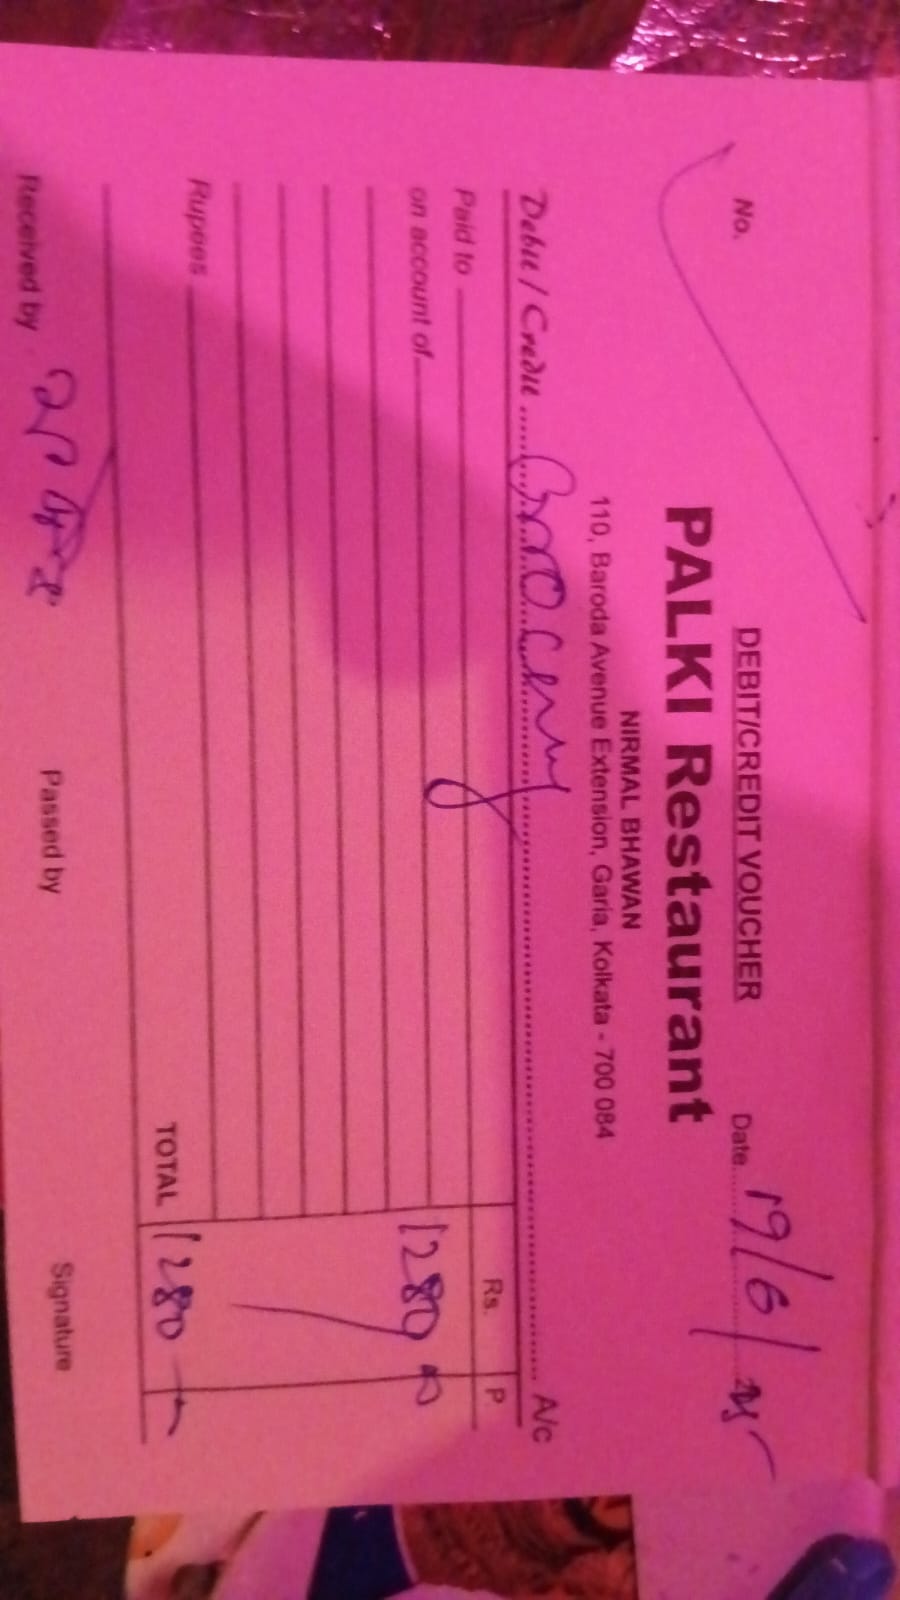 DEBIT/CREDIT VOUCHER
No. Date 19/6/25
PALKI Restaurant
NIRMAL BHAWAN
110, Baroda Avenue Extension, Garia, Kolkata - 700 084
Debit / Credit Grocery A/c
Rs. P.
Paid to
on account of 1280
Rupees
TOTAL 1280
Received by Passed by Signature